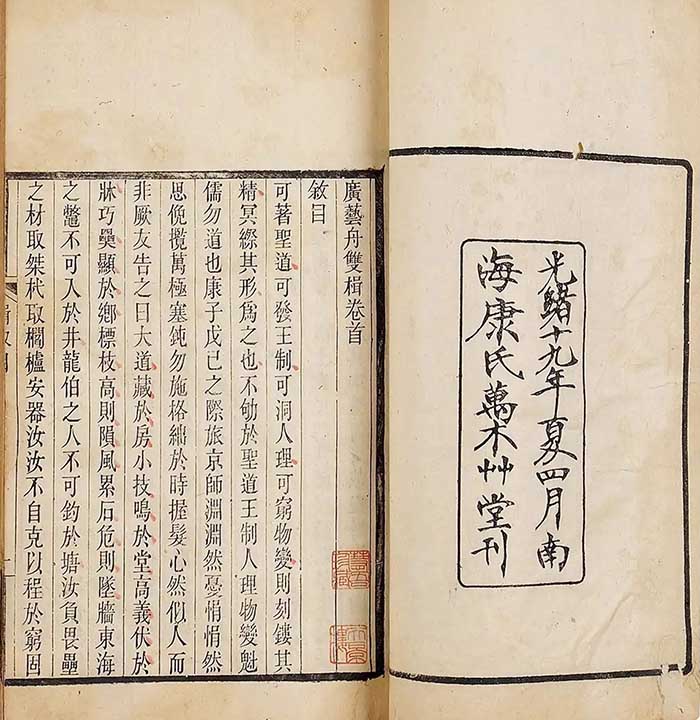 光緒十九年夏四月南
海康氏萬木艸堂刊
廣藝舟雙楫卷首
敘目
可著聖道可發王制可洞人理可窮物變則刻鏤其
精冥縩其形爲之也不劬於聖道王制人理物變魁
儒勿道也康子戊己之際旅京師淵淵然憂悁悁然
思俛攬萬極塞鈍勿施格絀於時握髮心然似人而
非厥友告之曰大道藏於房小技鳴於堂高義伏於
牀巧奰顯於鄉標枝高則隕風累石危則墜牆東海
之鼈不可入於井龍伯之人不可釣於塘汝負畏壘
之材取桀杙取櫚櫨安器汝汝不自克以程於窮固